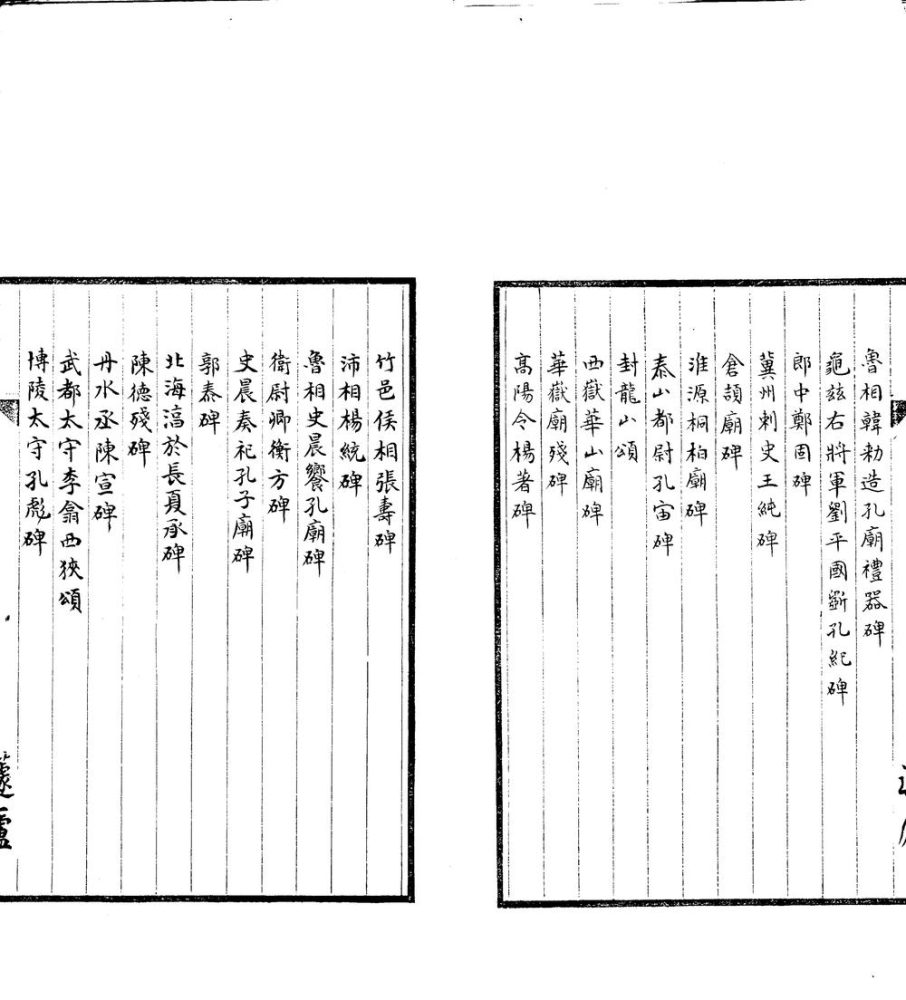 魯相韓勑造孔廟禮器碑
龜兹右將軍劉平國斲孔紀碑
郎中鄭固碑
冀州刺史王純碑
倉頡廟碑
淮源桐柏廟碑
泰山都尉孔宙碑
封龍山頌
西嶽華山廟碑
華嶽廟殘碑
高陽令楊著碑
竹邑侯相張壽碑
沛相楊統碑
魯相史晨饗孔廟碑
衛尉卿衡方碑
史晨奏祀孔子廟碑
郭泰碑
北海淳於長夏承碑
陳德殘碑
丹水丞陳宣碑
武都太守李翕西狹頌
博陵太守孔彪碑